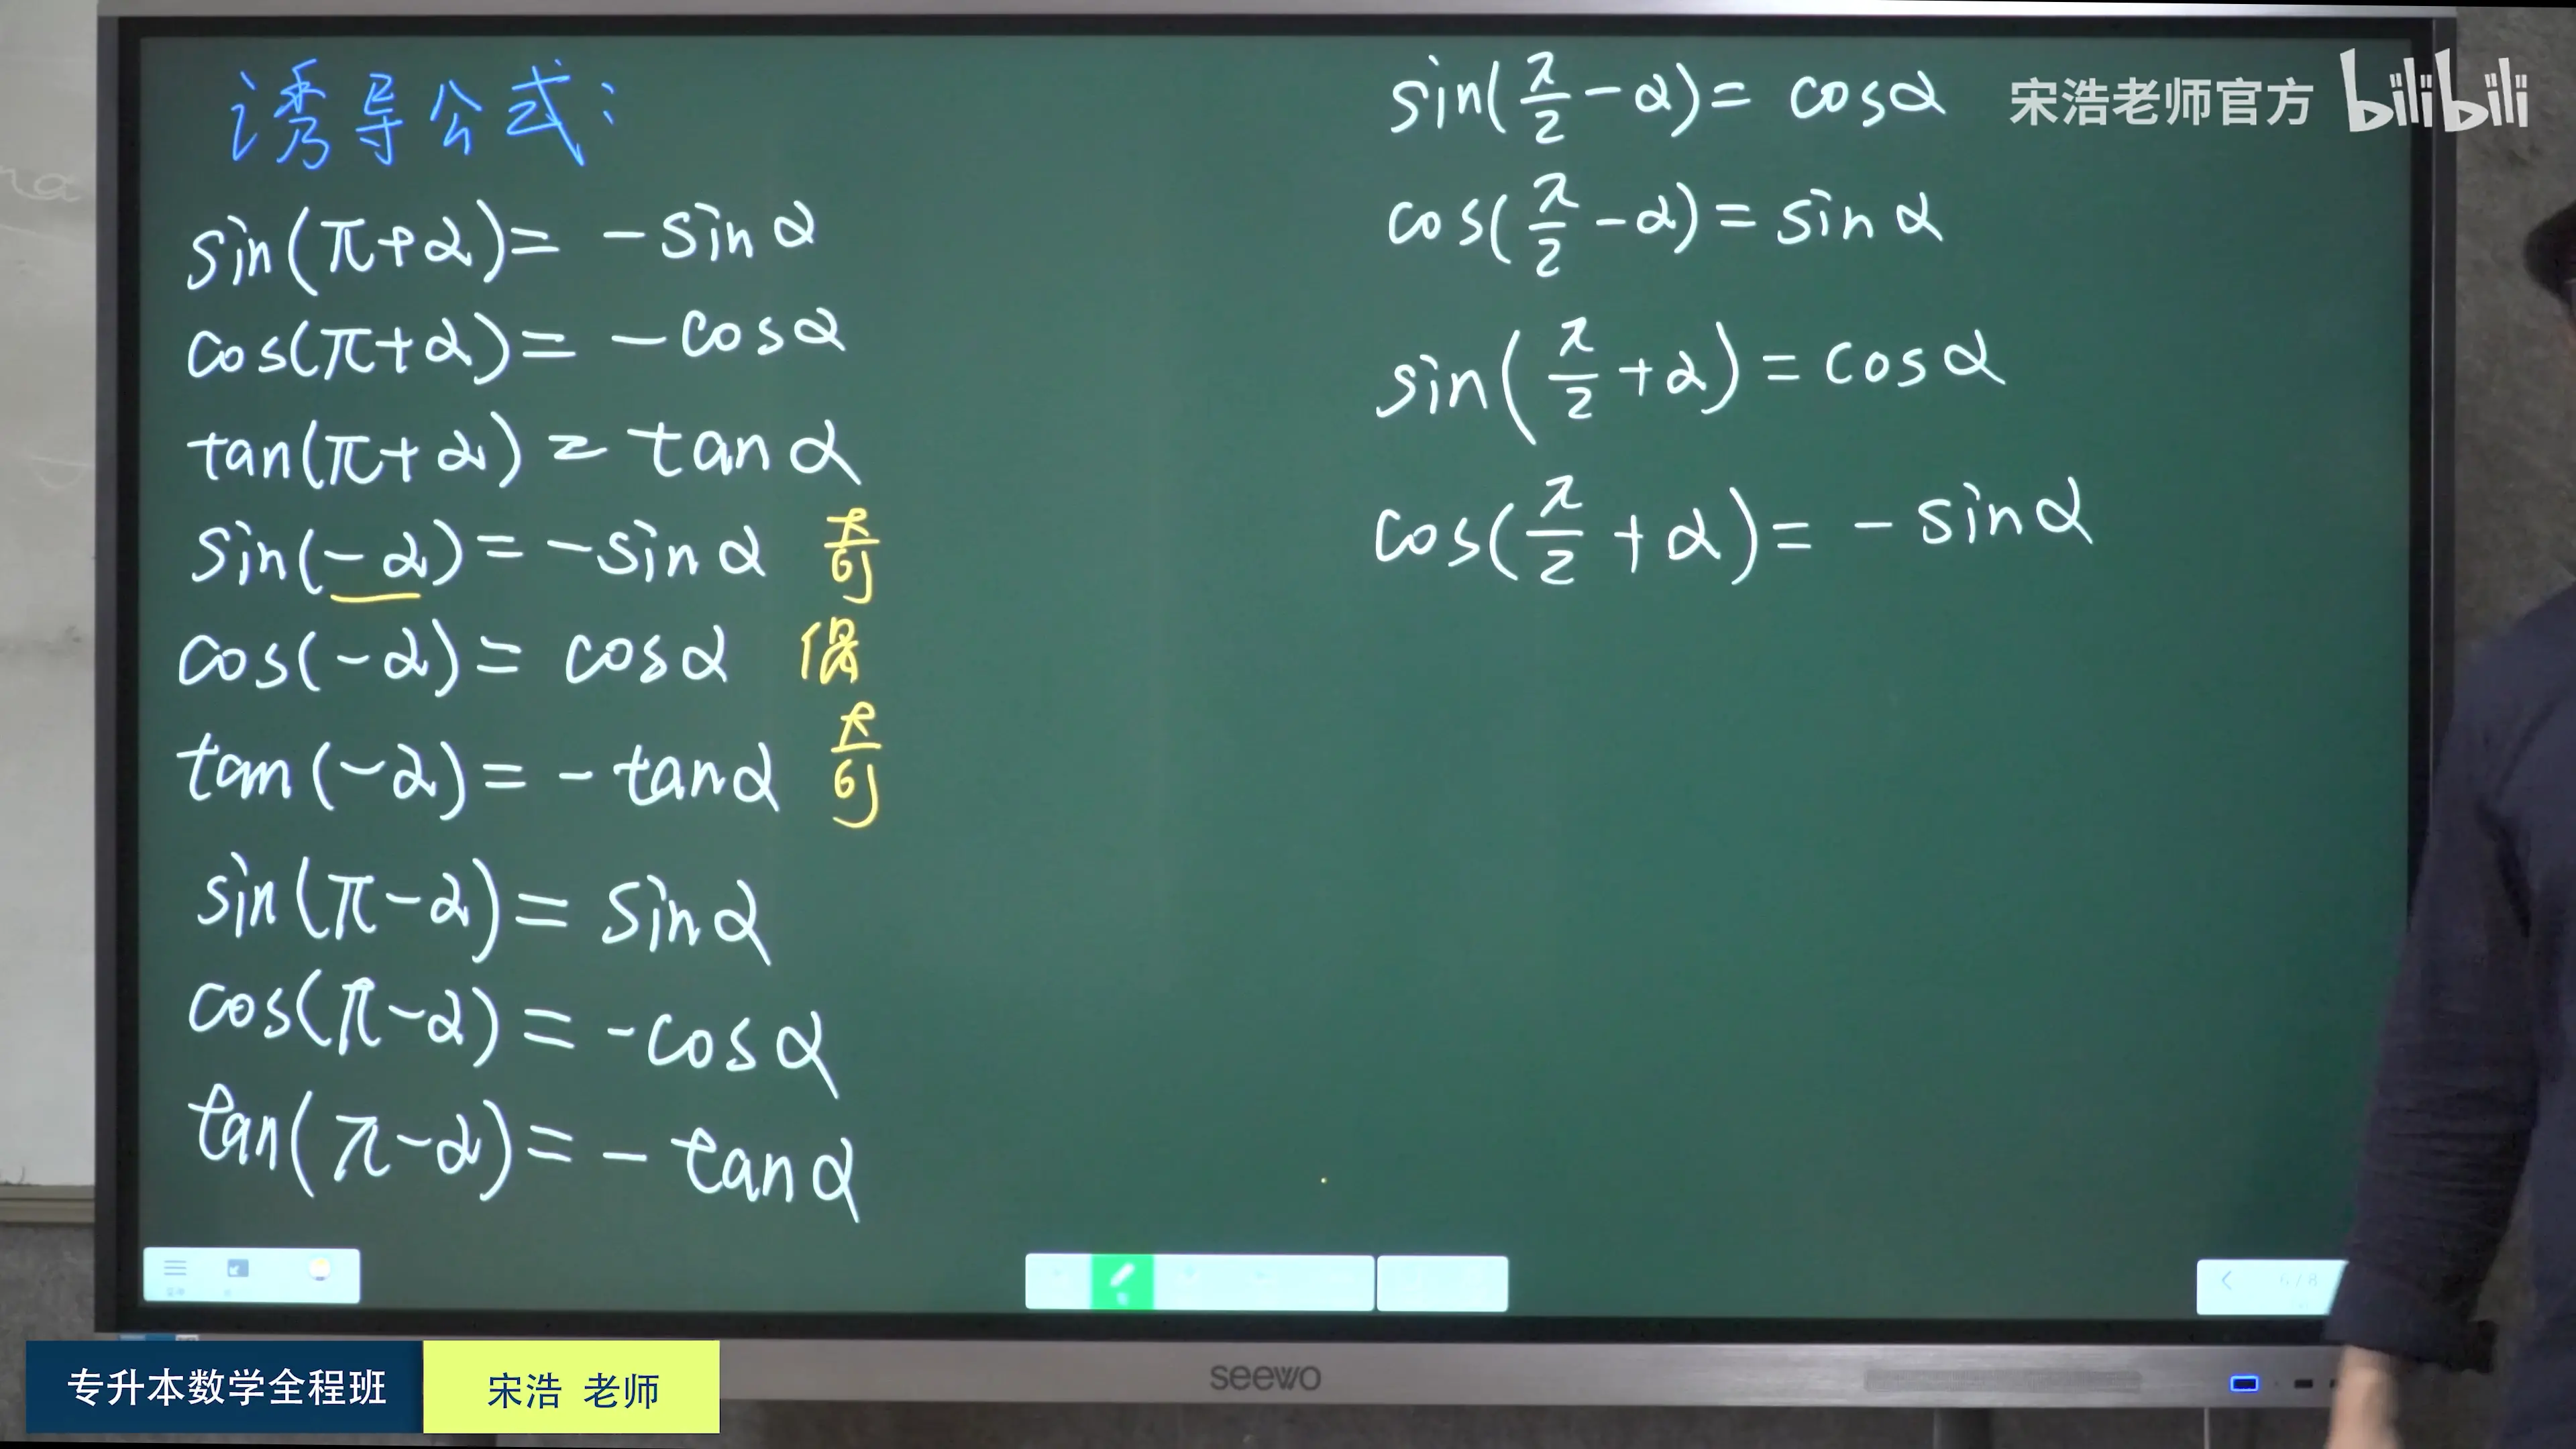 诱导公式:
sin(π+α)= -sinα
cos(π+α)= -cosα
tan(π+α)= tanα
sin(-α)= -sinα 奇
cos(-α)= cosα 偶
tan(-α)= -tanα 奇
sin(π-α)= sinα
cos(π-α)= -cosα
tan(π-α)= -tanα
sin(π/2-α)= cosα
cos(π/2-α)= sinα
sin(π/2+α)= cosα
cos(π/2+α)= -sinα
宋浩老师官方 bilibili
seewo
专升本数学全程班 宋浩 老师